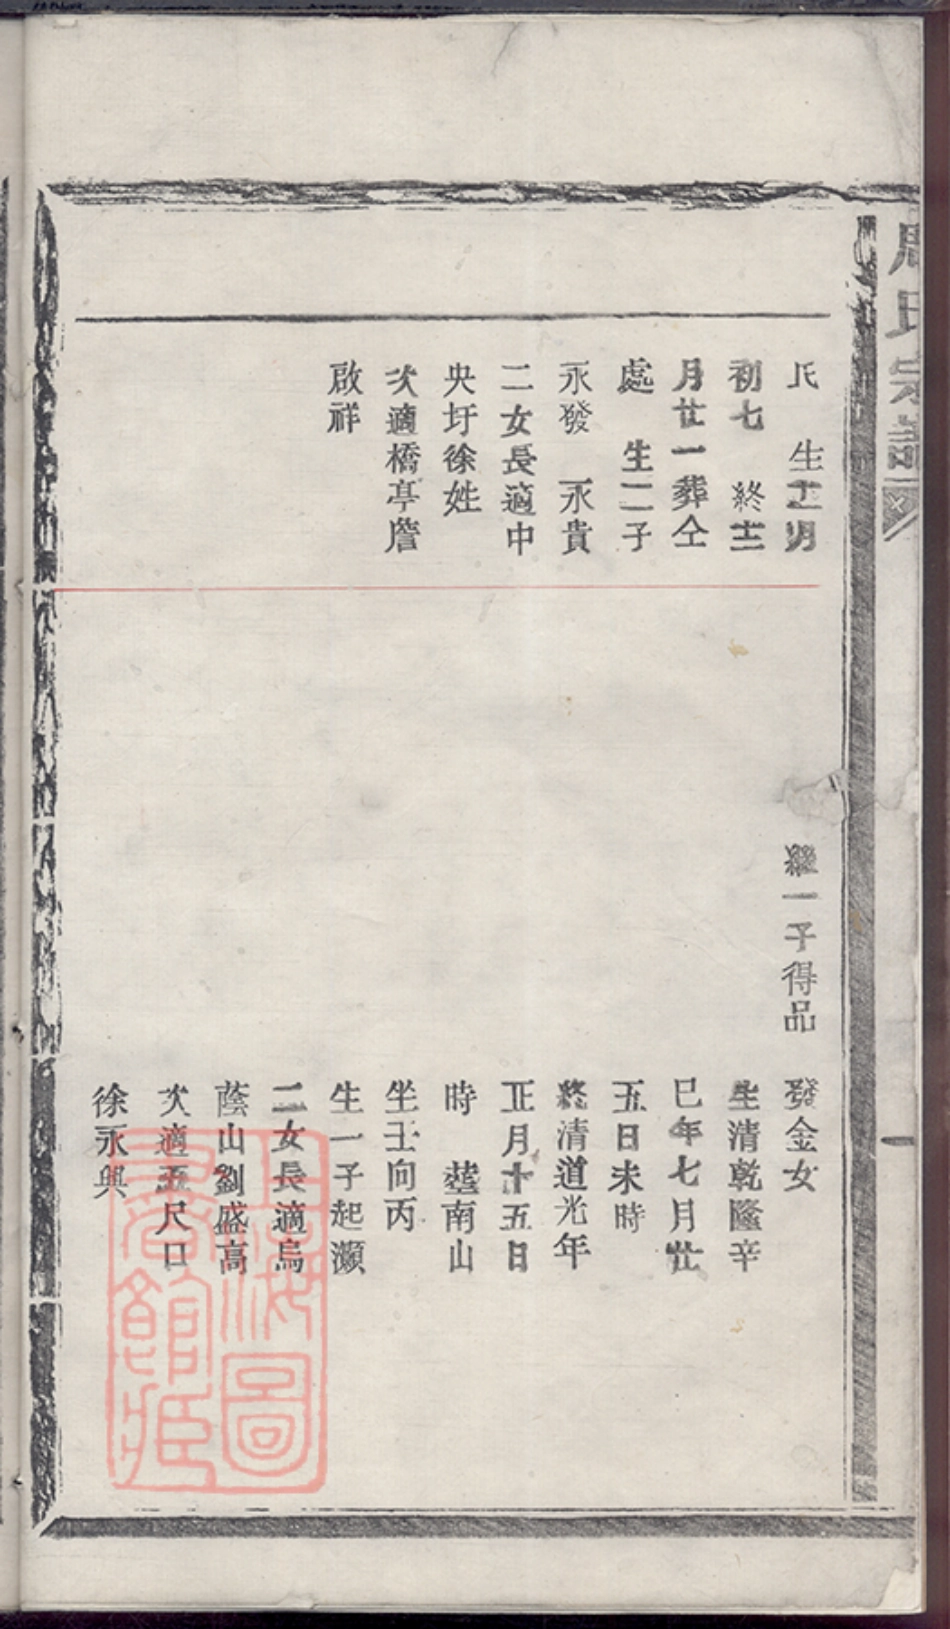 周氏宗譜
氏　生十二月
初七　終十二
月廿一葬仝
處　生二子
永發　永貴
二女長適中
央圩徐姓
次適橋亭詹
啟祥
繼一子得品
發金女
生清乾隆辛
巳年七月廿
五日未時
終清道光年
正月十五日
時　塟南山
坐壬向丙
生一子起灝
二女長適烏
蔭山劉盛高
次適五尺口
徐永興
上海圖書館藏